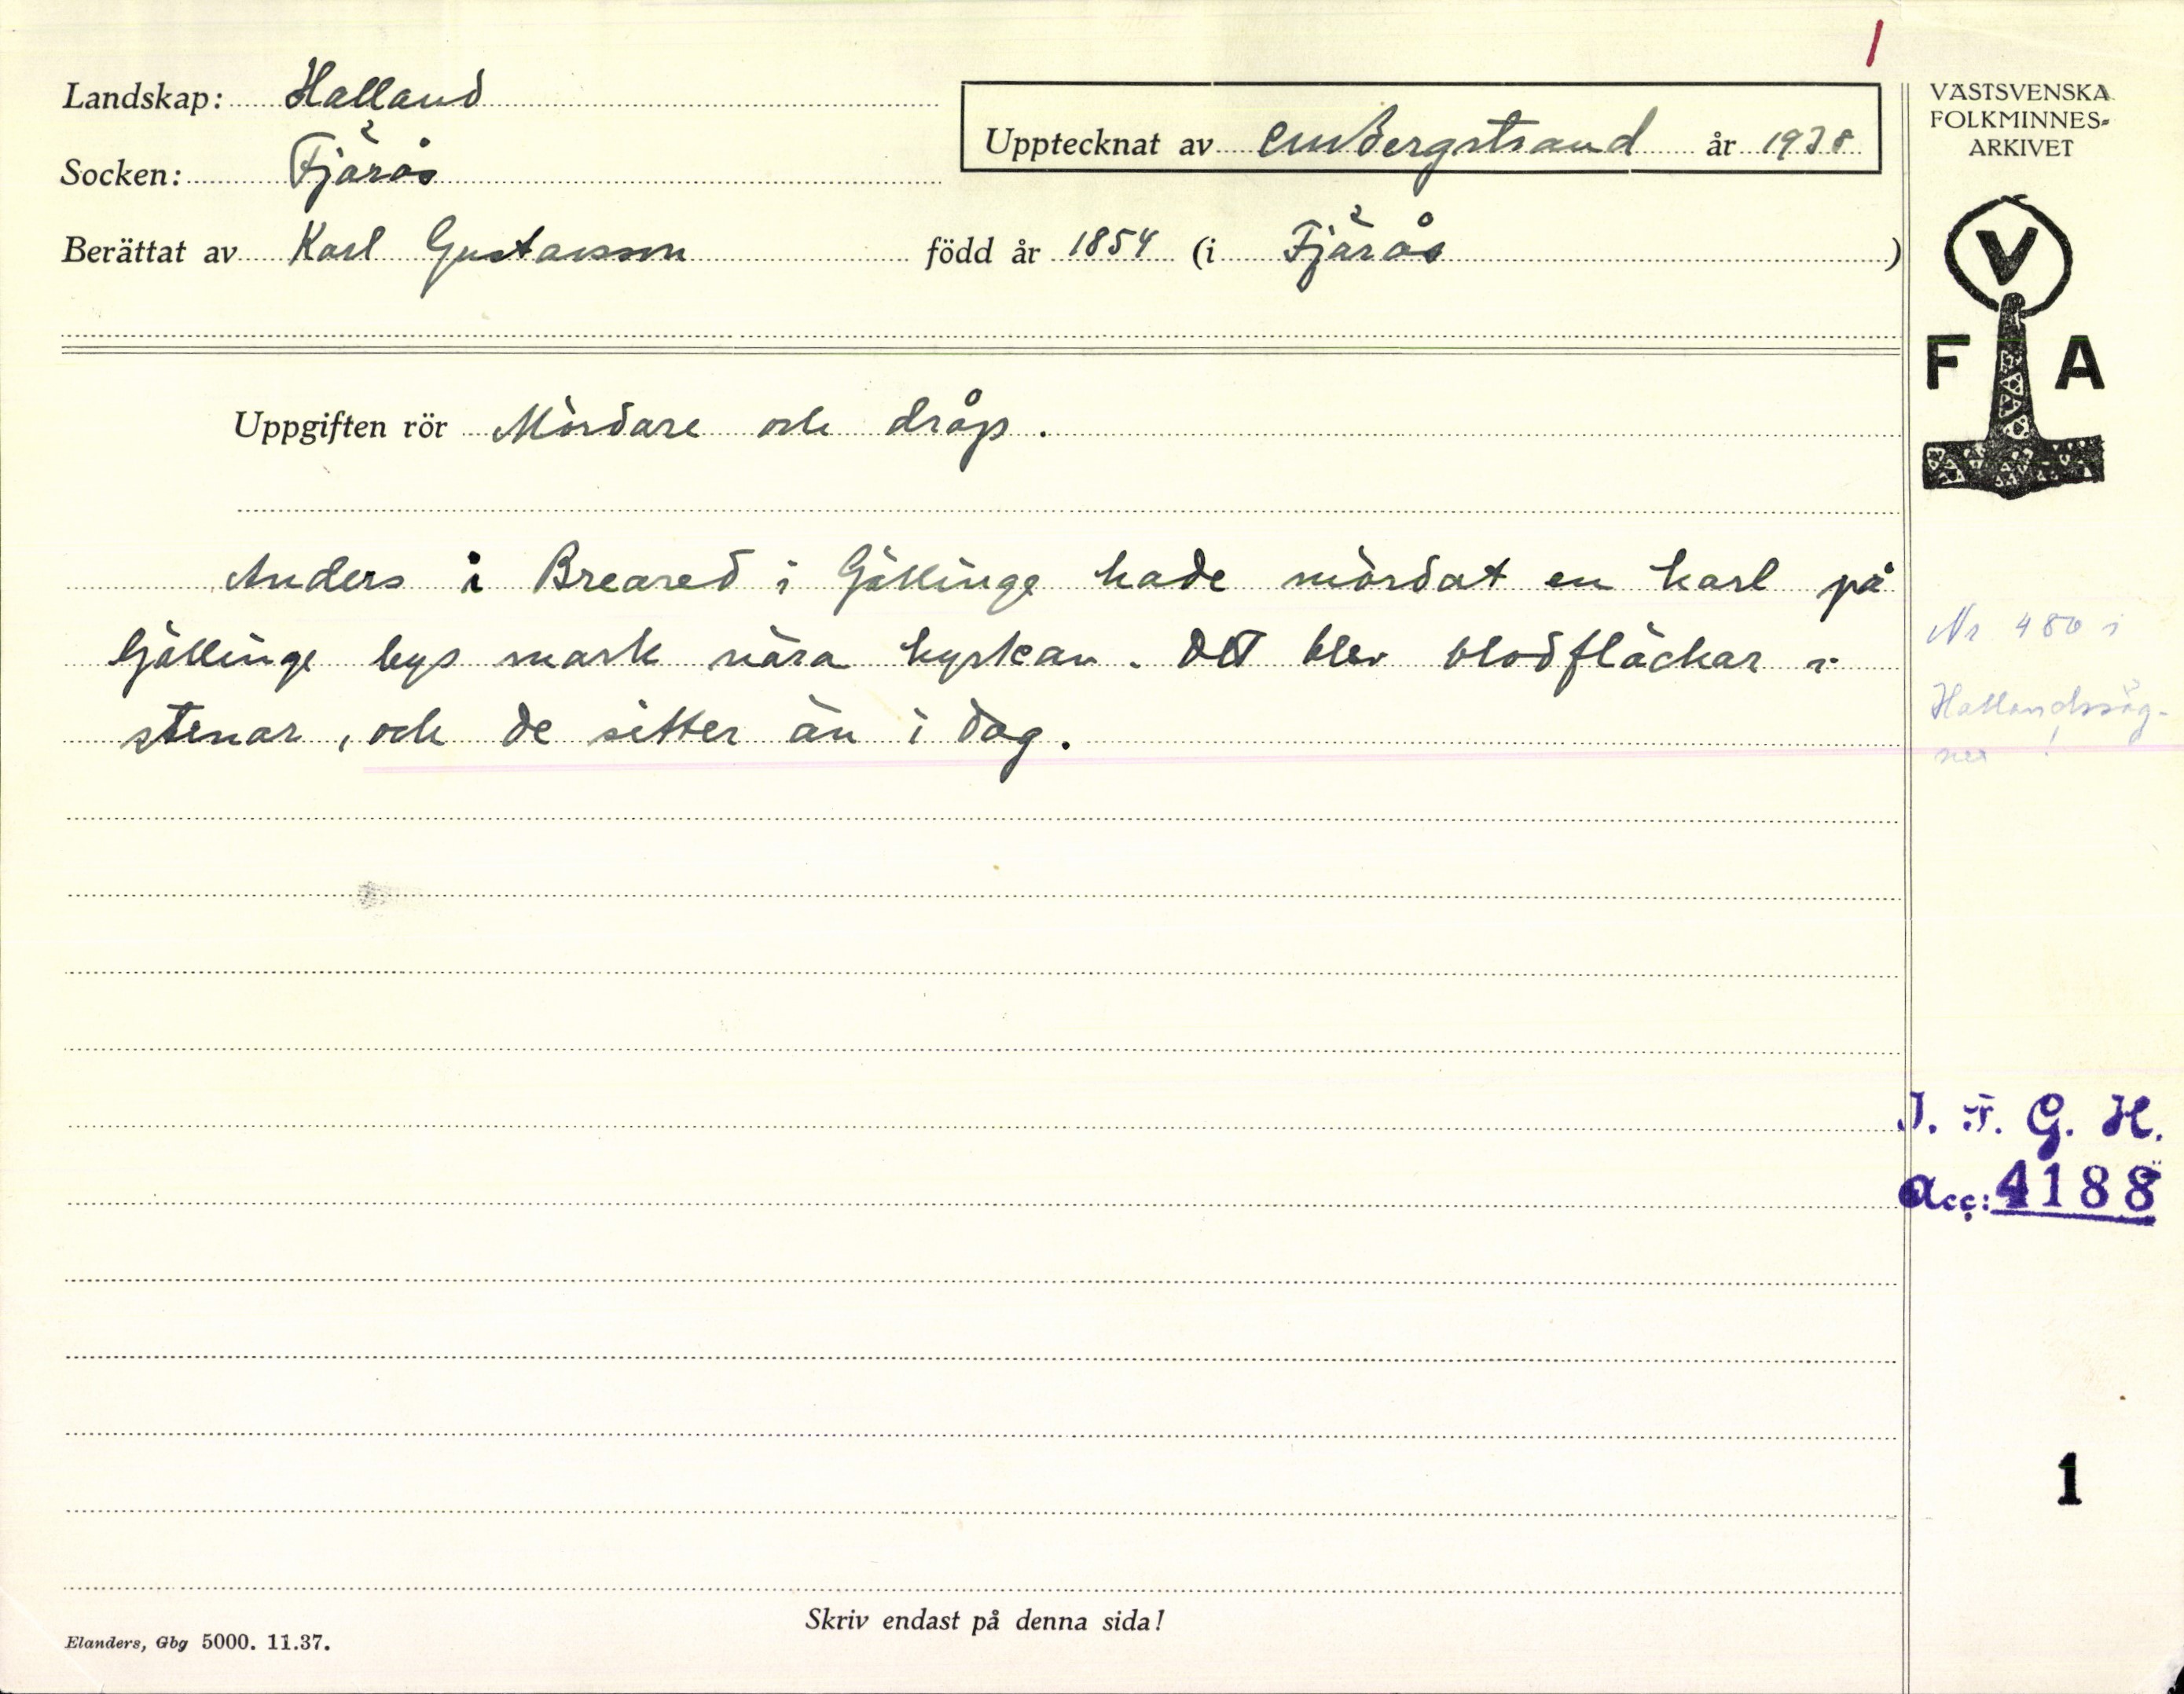 1
Landskap: Halland
Socken: Fjärås
Upptecknat av CMBergstrand år 1938
Berättat av Karl Gustavsson född år 1854 (i Fjärås)
Uppgiften rör Mördare och dråp.
Anders i Breared i Gällinge hade mördat en karl på
Gällinge bys mark nära kyrkan. Det blev blodfläckar i
stenar, och de sitter än i dag.
VÄSTSVENSKA
FOLKMINNES-
ARKIVET
V
F A
Nr 480 i
Hallandssäg-
ner!
I. F. G. H.
Acc: 4188
1
Skriv endast på denna sida!
Elanders, Gbg 5000. 11.37.